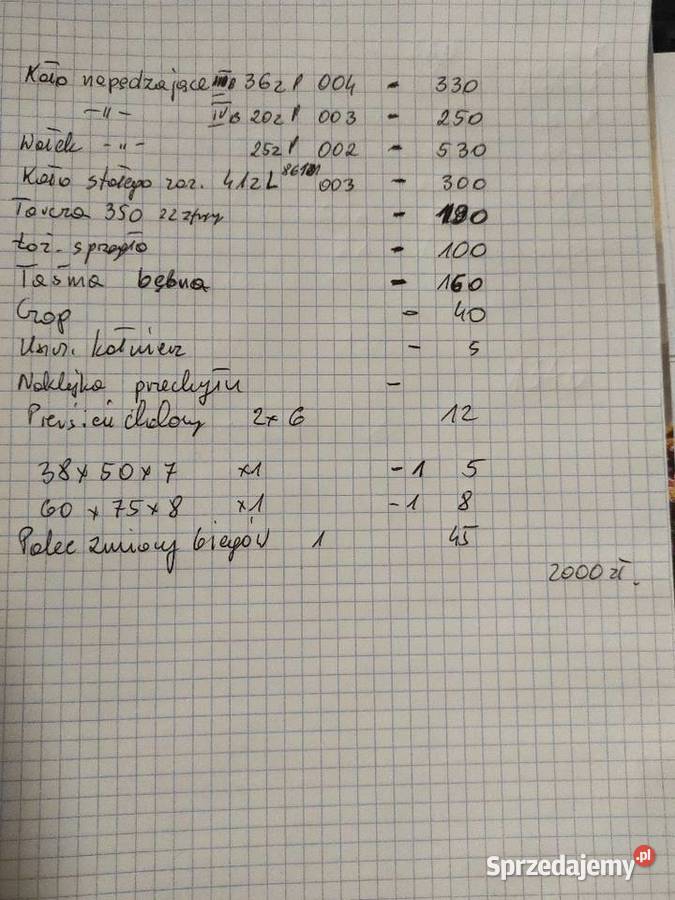 Koło napędzające III 36z P 004 - 330
-"- IV B 20z P 003 - 250
Wałek -"- 25z P 002 - 530
Koło stałego zaz. 41z L 003 - 300
Tarcza 350 22 - 190
Łoż. sprzęgło - 100
Taśma bębna - 160
Czop - 40
Usz. kołnierz - 5
Naklejka przechyłu -
Pierścień 2x6 12
38x50x7 x1 -1 5
60x75x8 x1 -1 8
Palec zmiany biegów 1 45
2000 zł.
Sprzedajemy.pl